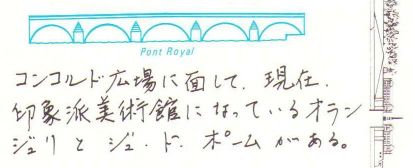 Pont Royal
コンコルド広場に面して、現在、
印象派美術館になっているオラン
ジュリとジュ・ド・ポームがある。